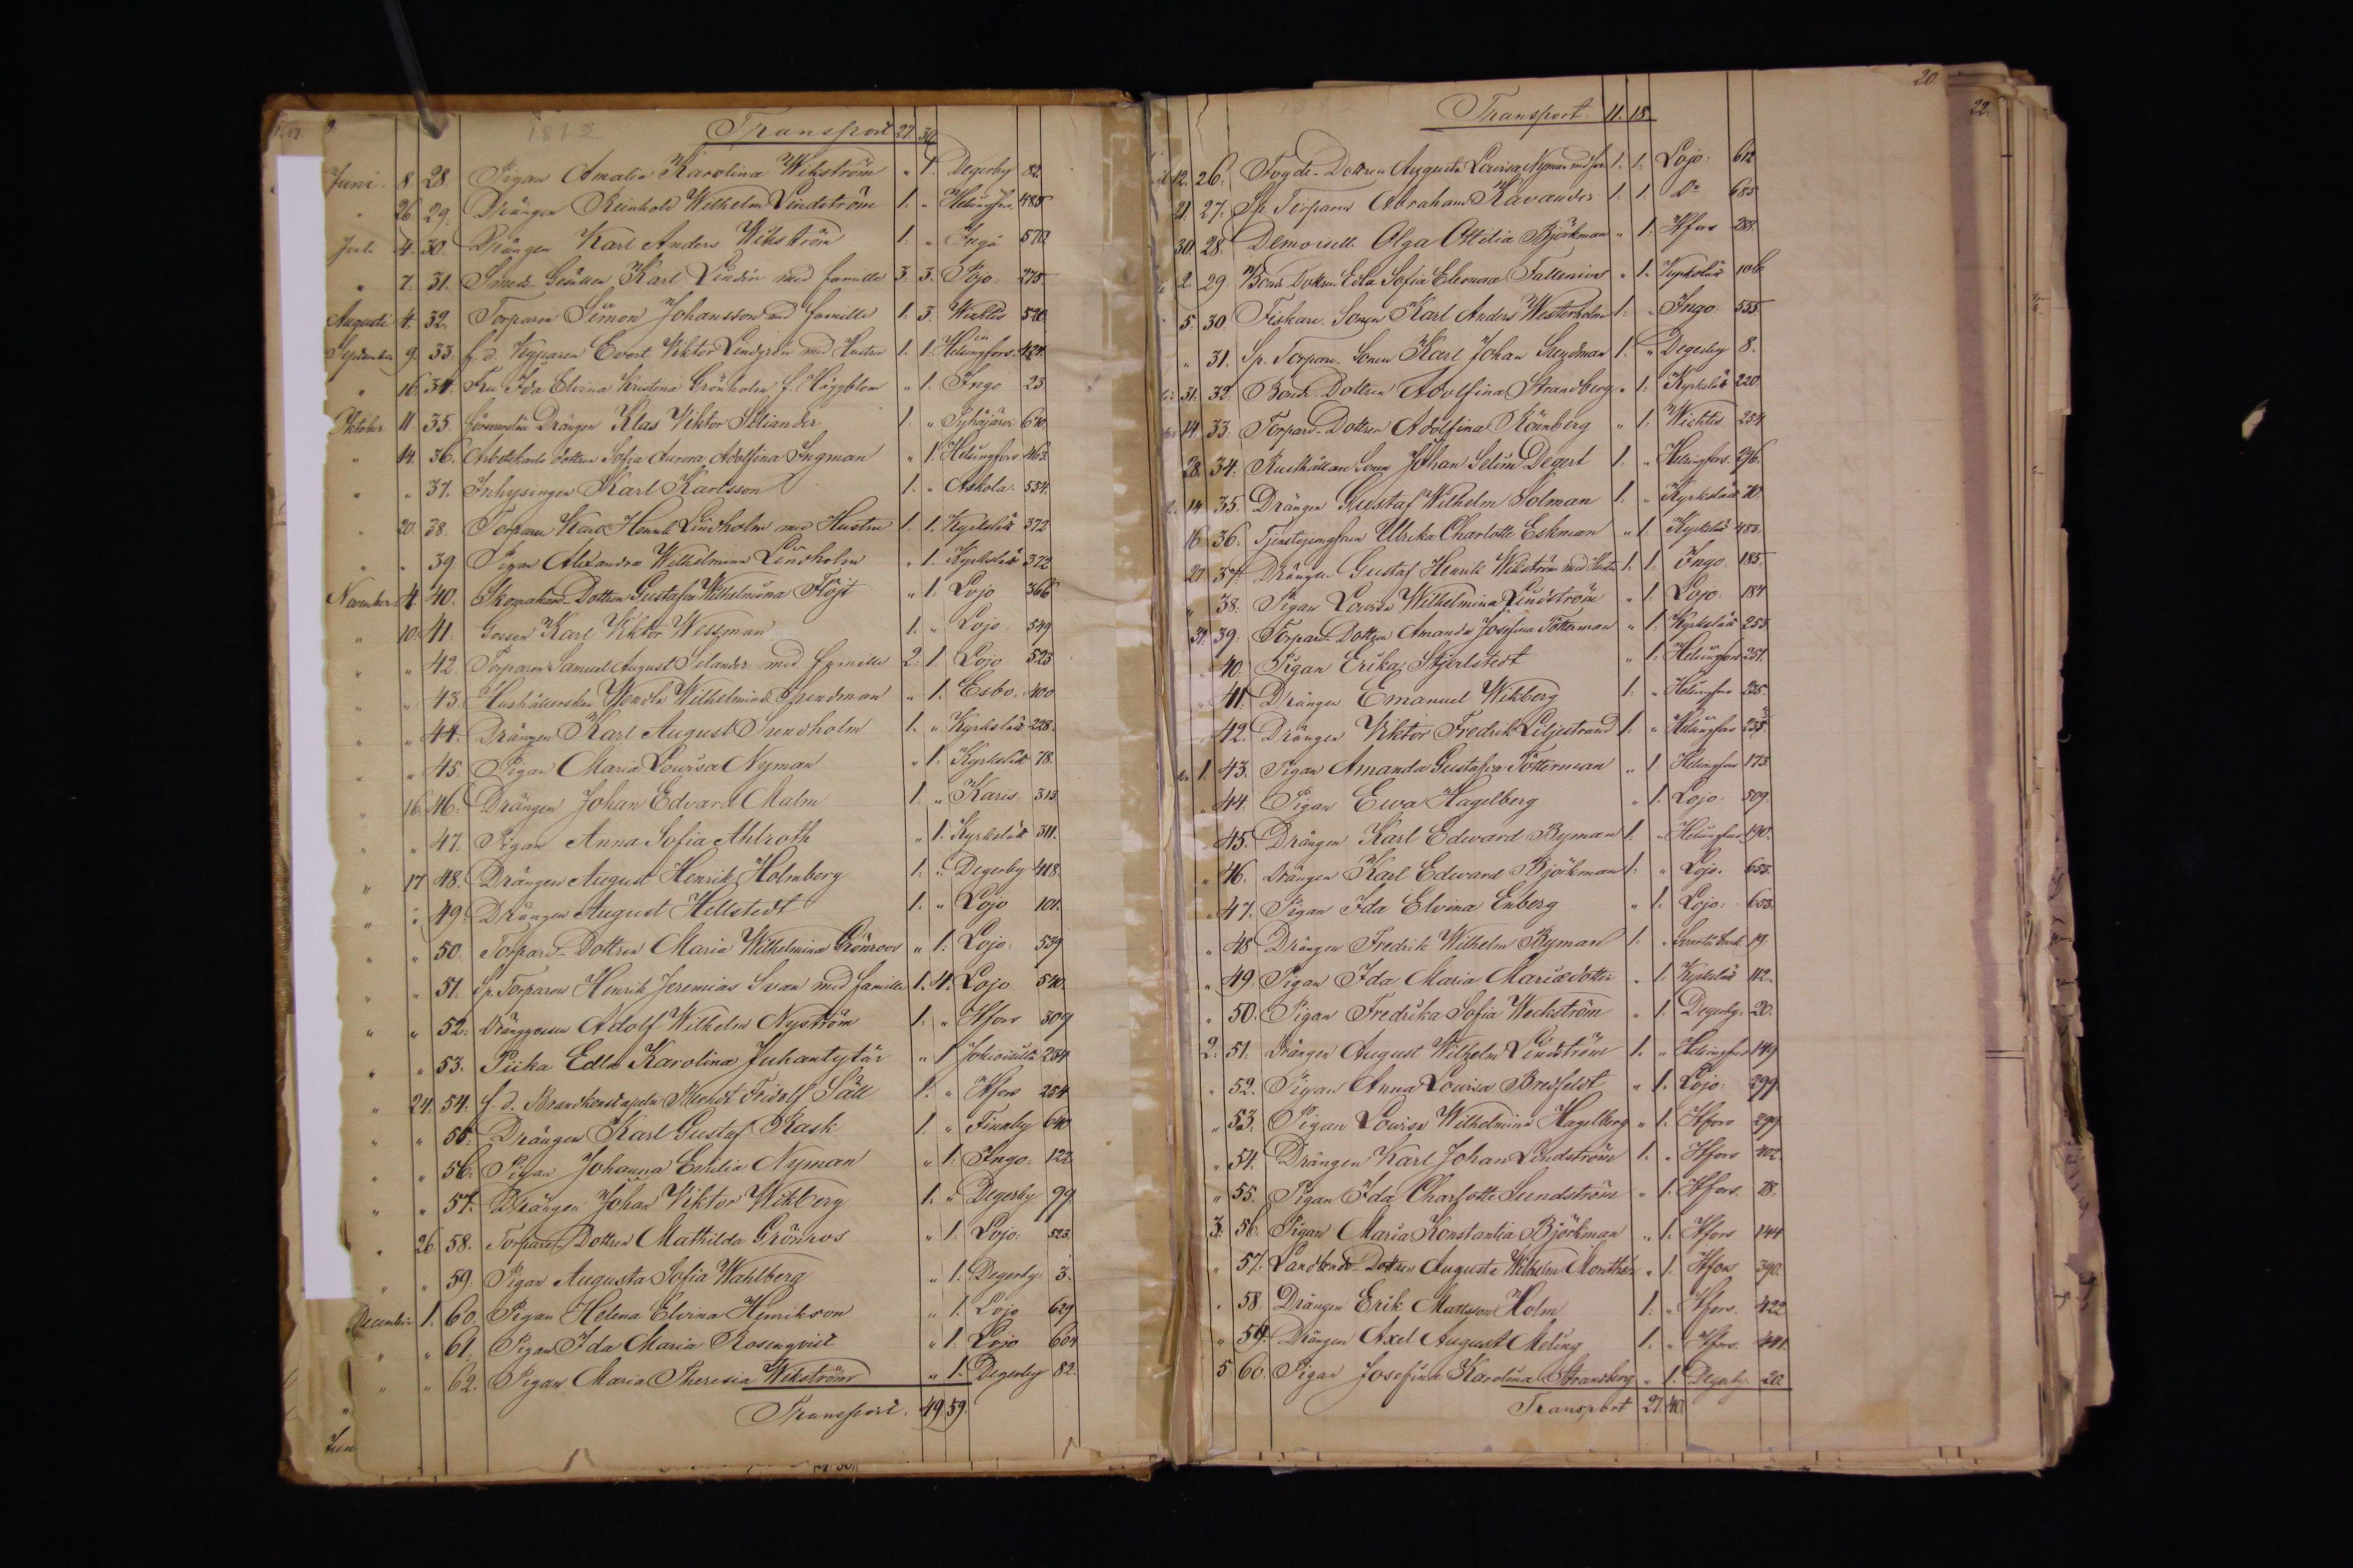 1872 Transport 27. 30.
Juni. 8. 28. Pigan Amalia Karolina Wikström " 1. Degerby 82
" 26. 29. Drängen Reinhold Wilhelm Lindström 1. " Helsingfors. 485
Juli 4. 30. Drängen Karl Anders Wikström 1. " Ingå 570.
" 7. 31. Smeds-Gesällen Karl Lindén med familie 3. 3. Pojo. 275
Augusti 4. 32. Torparen Simon Johansson med familie 1. 3. Wichtis 520.
September 9. 33. f. d. Kyparen Evert Viktor Lindgren med Hustru 1. 1. Helsingfors. 424.
" 16. 34. Fru Ida Elvina Kristina Grönholm f. Häggblom " 1. Ingo 23
Oktober 11. 35. Drängen Klas Viktor Seliander 1. " Pyhäjärvi 670.
" 14. 36. Arbetskarls dottren Sofia Aurora Adolfina Ingman " 1. Helsingfors 463.
" " 37. Inhysingen Karl Karlsson 1. " Askola. 554.
" 20. 38. Torparen Karl Henrik Lindholm med Hustru 1. 1. Kyrkslät 372
" " 39. Pigan Alexandra Wilhelmina Lindholm " 1. Kyrkslät 372
November 4. 40. Skomakare-Dottren Gustafva Wilhelmina Flöjt " 1. Lojo 366
" 10. 41. Gossen Karl Viktor Wessman 1. " Lojo. 549
" " 42. Torparen Samuel August Selander med familie 2. 1. Lojo 523
" " 43. Hushållerskan Wendla Wilhelmina Sundman " 1. Esbo. 400
" " 44. Drängen Karl August Sundholm 1. " Kyrkslät 228.
" " 45. Pigan Maria Lovisa Nyman " 1. Kyrkslät 78.
" 16. 46. Drängen Johan Edvard Malm 1. " Karis. 313
" " 47. Pigan Anna Sofia Ahlroth " 1. Kyrkslät 311.
" 17 48. Drängen August Henrik Holmberg 1. " Degerby 418.
" " 49. Drängen August Hellstedt 1. " Lojo 101.
" " 50. Torpare-Dottren Maria Wilhelmina Grönroos " 1. Lojo. 539
" " 51. Sp. Torparen Henrik Jeremias Svan med familie 1. 4. Lojo 540
" " 52. Dränggossen Adolf Wilhelm Nyström 1. " Hfors 309
" " 53. Piika Edla Karolina Juhantytär " 1 254
" 24. 54. f. d. Fridolf Säll 1. " Hfors 254
" " 55. Drängen Karl Gustaf Rask 1. " Finnby 640
" " 56. Pigan Johanna Emilia Nyman " 1. Ingo. 122
" " 57. Drängen Johan Viktor Wikberg 1. " Degerby 99
" 26. 58. Torpare-Dottren Mathilda Grönros " 1. Lojo. 523.
" " 59. Pigan Augusta Sofia Wahlberg " 1. Degerby. 3.
December 1. 60. Pigan Helena Elvina Henrikson " 1. Lojo 629
" " 61. Pigan Ida Maria Rosenqvist " 1. Lojo 604
" " 62. Pigan Maria Theresia Wikström " 1. Degerby 82.
Transport. 49. 59.
20
22.
Transport. 11. 18.
12. 26. Fogde-Dottren Augusta Lovisa Nyman 1. 1. Lojo. 612
21. 27. Sp. Torparen Abraham Kavander 1. 1. Do 685
30. 28. Demoiselle Olga Ottilia Björkman " 1. Hfors 288.
2. 29. Bonde Dottren Edla Sofia Eleonora Fallenius " 1. Kyrkslät 106
5. 30. Fiskare-Sonen Karl Anders Westerholm 1. " Ingo. 555.
" 31. Sp. Torpare-Sonen Karl Johan Sundman 1. " Degerby 8.
31. 32. Bonde-Dottren Adolfina Strandberg " 1. Kyrkslät 220.
14. 33. Torpare-Dottren Adolfina Rönnberg " 1. Wichtis 254
28. 34. Rusthållare Sonen Johan Selim Degert 1. " Helsingfors. 296.
14 35. Drängen Gustaf Wilhelm Solman 1. " Kyrkslät 70.
16 36. Tjenstejungfrun Ulrika Charlotte Eskman " 1. Kyrkslät 483.
27 37. Drängen Gustaf Henrik Wikström med Hustru 1. 1. Ingo. 185.
" 38. Pigan Lovisa Wilhelmina Lindström " 1. Lojo. 184
31. 39. Torpare-Dottren Amanda Josefina Tötterman " 1. Kyrkslät 253.
" 40. Pigan Erika Stjerlstedt " 1. Helsingfors 251.
" 41. Drängen Emanuel Wikberg 1. " Helsingfors 235.
" 42. Drängen Viktor Fredrik Liljestrand 1. " Helsingfors 235.
1. 43. Pigan Amanda Gustafva Tötterman " 1. Helsingfors 173
" 44. Pigan Ewa Hagelberg " 1. Lojo. 509.
" 45. Drängen Karl Edward Byman 1. " Helsingfors 190.
" 46. Drängen Karl Edward Björkman 1. " Lojo. 655.
" 47. Pigan Ida Elvina Enberg " 1. Lojo. 653.
" 48 Drängen Fredrik Wilhelm Byman 1. " 19.
" 49. Pigan Ida Maria Mariædotter " 1. Kyrkslät 112.
" 50. Pigan Fredrika Sofia Weckström " 1. Degerby. 20.
2. 51. Drängen August Wilhelm Lindström 1. " Helsingfors 149
" 52. Pigan Anna Lovisa Bredfeldt " 1. Lojo. 299
" 53. Pigan Lovisa Wilhelmina Hagelberg " 1. Hfors 299
" 54. Drängen Karl Johan Lindström 1. " Hfors 402.
" 55. Pigan Ida Charlotte Sundström " 1. Hfors. 78.
3. 56. Pigan Maria Konstantia Björkman " 1. Hfors 144
" 57. Landbonde-Dottren Augusta Wilhelm " 1. Hfors 390.
" 58. Drängen Erik Mattsson Holm 1. " Hfors. 422
" 59. Drängen Axel August Meling 1. " Hfors. 441.
5 60. Pigan Josefina Karolina Strandberg " 1. Degerby. 20
Transport 27. 40.